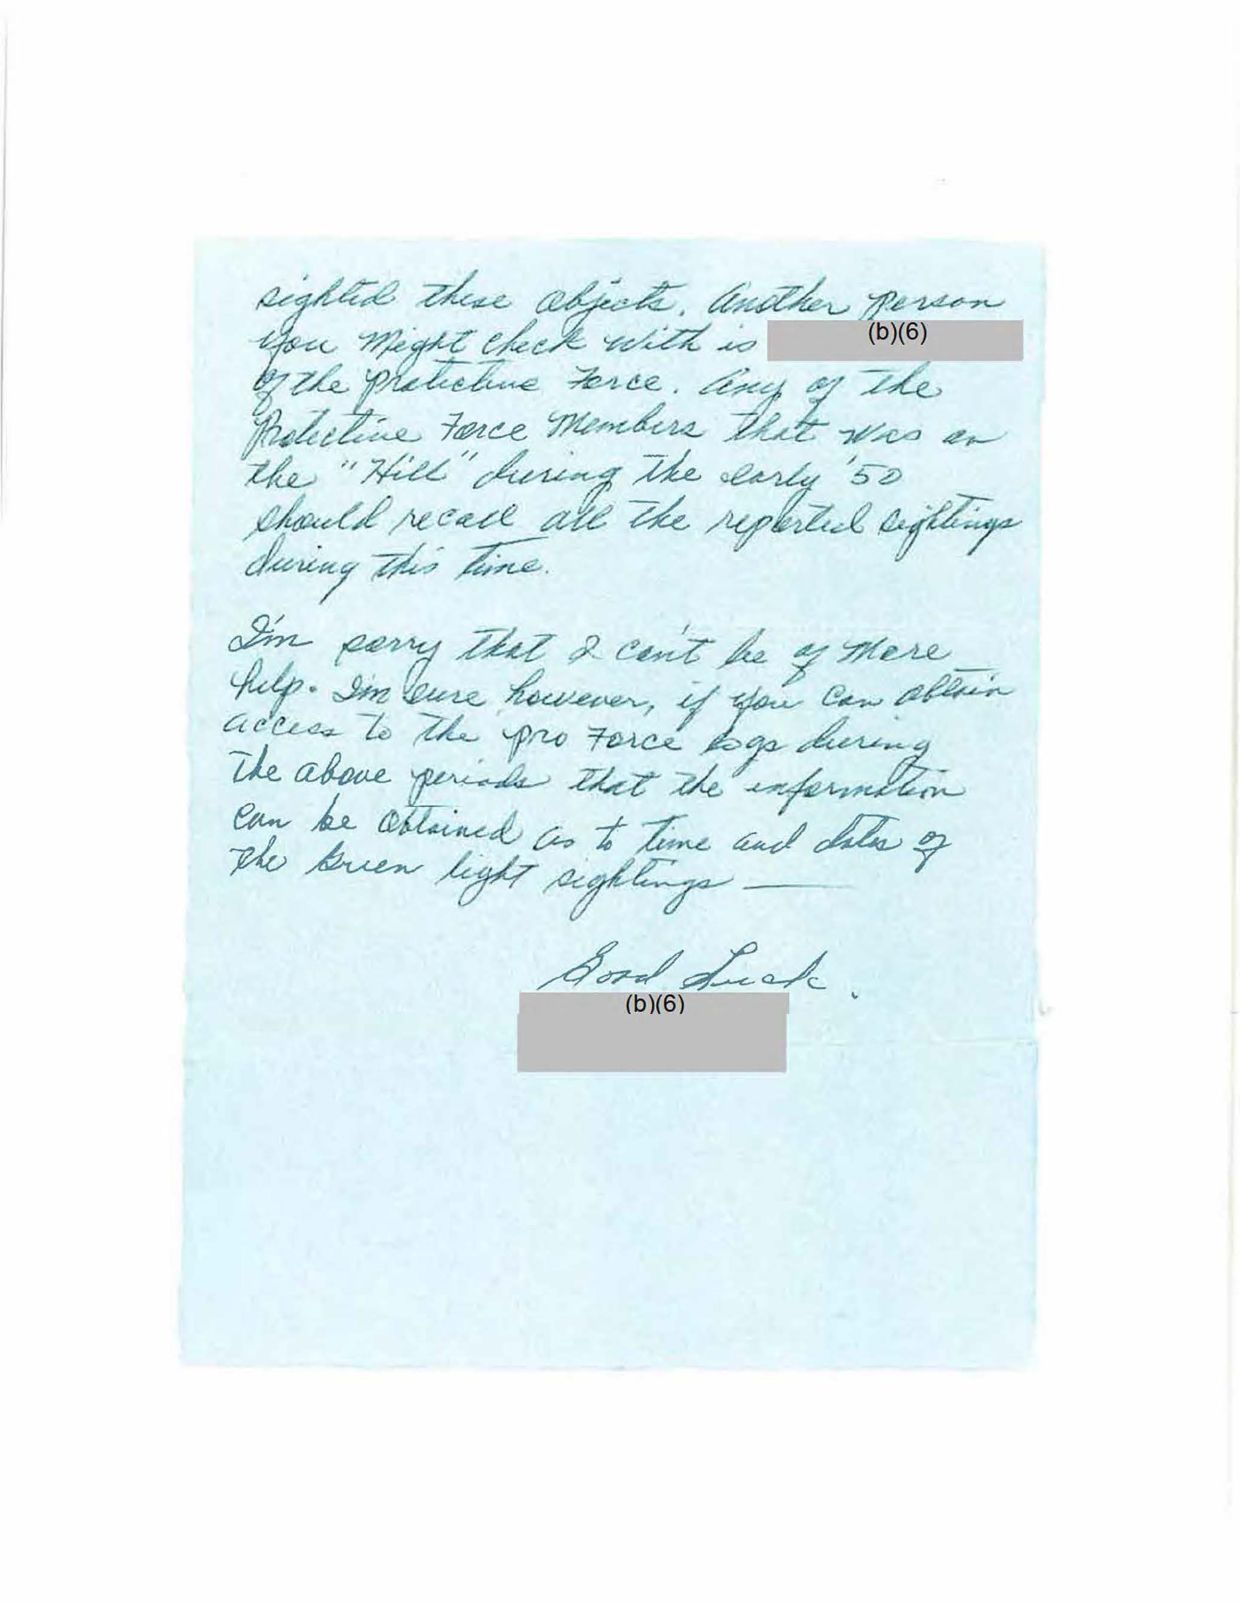 sighted these objects. Another person
(b)(6)
you Might check with is
of the protective Force. Any of the
Protective Force Members that was on
the "Hill" during the early '50
should recall all the reported sightings
during this time.
I'm sorry that I can't be of More
help. I'm sure however, if you can obtain
access to the pro Force logs during
the above periods that the information
can be obtained as to time and dates of
the Green light sightings —
Good Luck.
(b)(6)